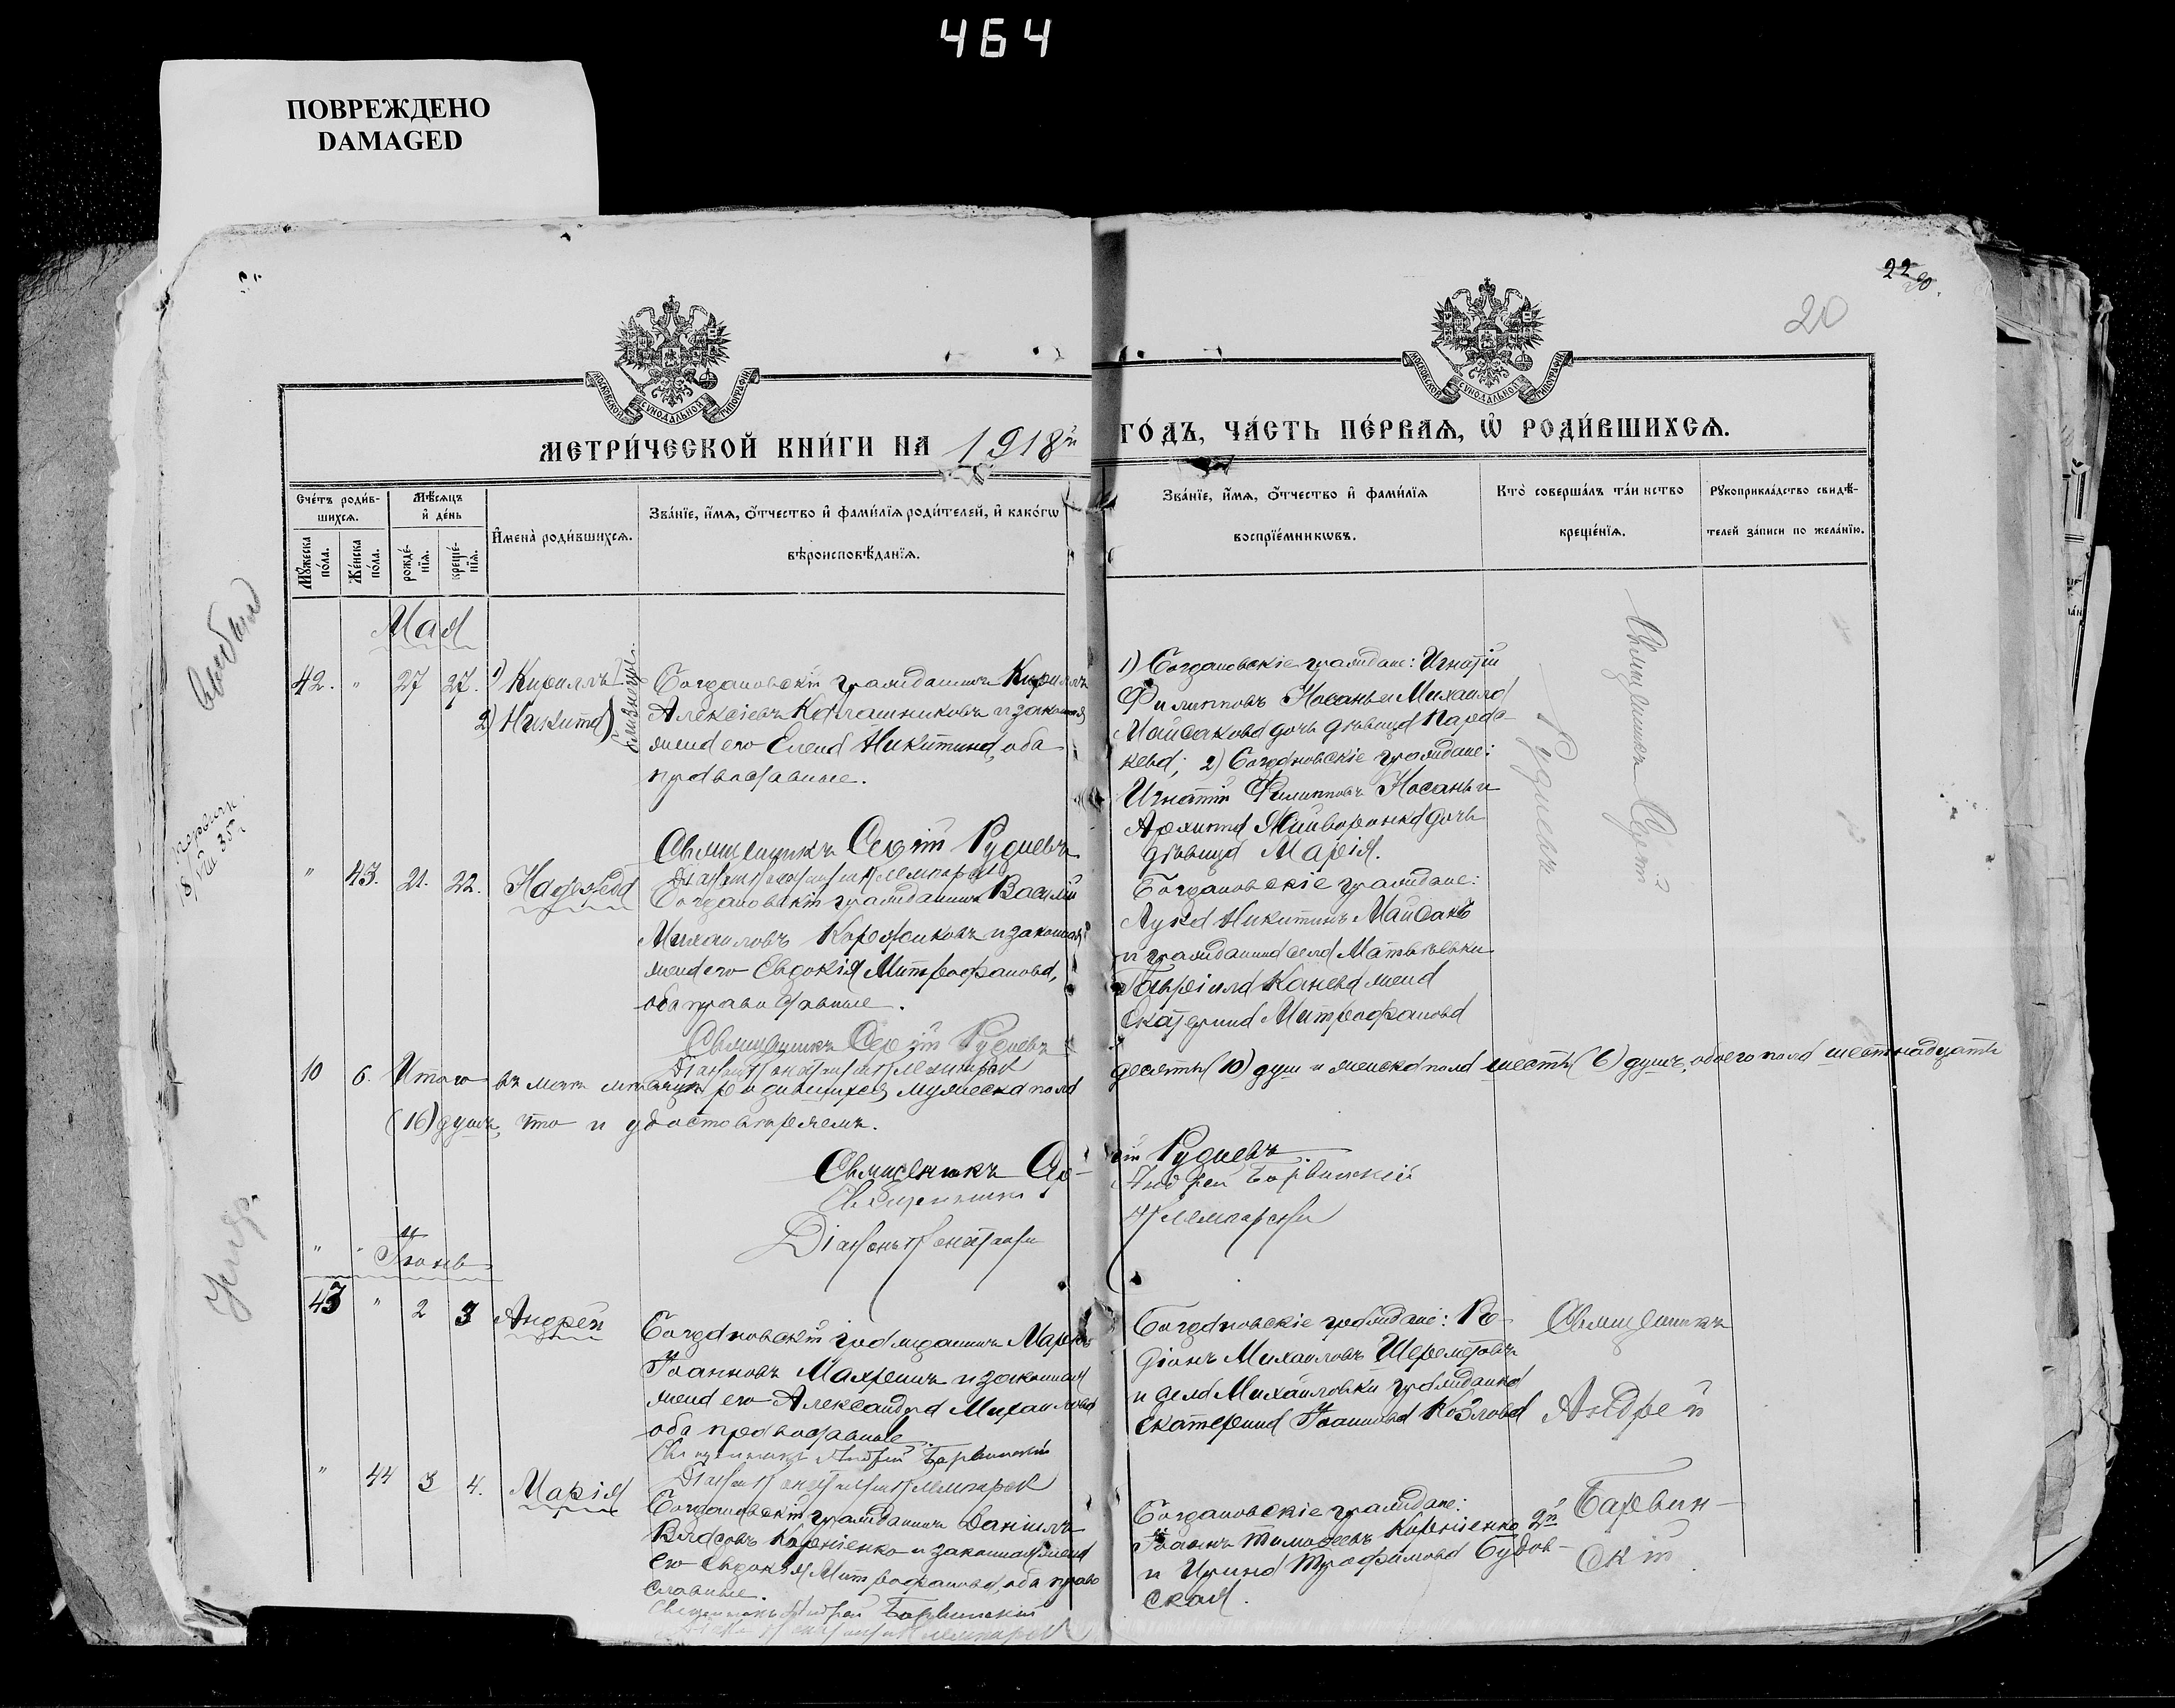 464
ПОВРЕЖДЕНО
DAMAGED
22
20
МОСКОВСКОЙ СѴНОДАЛЬНОЙ ТИПОГРАФІИ
МОСКОВСКОЙ СѴНОДАЛЬНОЙ ТИПОГРАФІИ
МЕТРИ́ЧЕСКОЙ КНИ́ГИ НА 1918й ГО́ДЪ, ЧА́СТЬ ПЕ́РВАѦ, Ѡ҆ РОДИ́ВШИХСѦ.
Сче́тъ роди́в-
шихсѧ.
Мꙋ́жеска по́ла.
Же́нска по́ла.
Мѣ́сѧцъ
и҆ де́нь
рожде́-
нїѧ.
креще́-
нїѧ.
И҆мена̀ роди́вшихсѧ.
Зва́нїе, и҆́мѧ, о҆́тчество и҆ фами́лїѧ роди́телей, и҆ како́гѡ
вѣроисповѣ́данїѧ.
Зва́нїе, и҆́мѧ, о҆́тчество и҆ фами́лїѧ
воспрїе́мникѡвъ.
Кто̀ соверша́лъ та́инство
креще́нїѧ.
Рꙋкоприкла́дство свидѣ́-
телей за́писи по жела́нїю.
Мая
42. " 27 27. 1) Кириллъ
2) Никита
близнецы.
Богдановскій гражданинъ Кириллъ
Алексіевъ и законная
жена его Елена Никитина, оба
православные.
Священникъ Сергій Рудневъ
1) Богдановскіе граждане: Игнатій
Филипповъ Носань и Михаила
Майсакова дочь дѣвица Парас-
кева; 2) Богдановскіе граждане:
Игнатій Филипповъ Носань и
Архипа дочь
дѣвица Марія.
Священникъ Сергій
Рудневъ
" 43. 21. 22. Надежда
Богдановскій гражданинъ Василій
Михаиловъ и законная
жена его Евдокія Митрофанова,
оба православные.
Священникъ Сергій Рудневъ
Богдановскіе граждане:
Лука Никитинъ Майсакъ
и гражданина села Матвѣевки
Гавріила Канева жена
Екатерина Митрофанова
10 6. Итого въ маѣ мѣсяцѣ родившихся мужеска пола десять (10) душ и женска пола шесть (6) душъ, обоего пола шестнадцать
(16) душъ, что и удостовѣряемъ.
Священникъ Сергій Рудневъ
Священникъ Андрей Барвинскій
Діаконъ
" " Іюнь
43 " 2 3 Андрей
Богдановскій гражданинъ
Іоанновъ и законная
жена его Александра Михаилова
оба православные
Священникъ Андрей Барвинскій
Богдановскіе граждане: Ро-
діонъ Михаиловъ Шереметовъ
и села Михайловки гражданка
Екатерина Іоаннова Козлова
Священникъ
Андрей
Барвин-
скій
" 44 3 4. Марія
Богдановскій гражданинъ Даніилъ
Власовъ Корніенко и законная жена
его Евдокія Митрофанова, оба право
славные.
Священникъ Андрей Барвинскій
Богдановскіе граждане:
Іоаннъ Тимофеевъ Корніенко 2й
и Ирина Трофимова Будов-
ская.